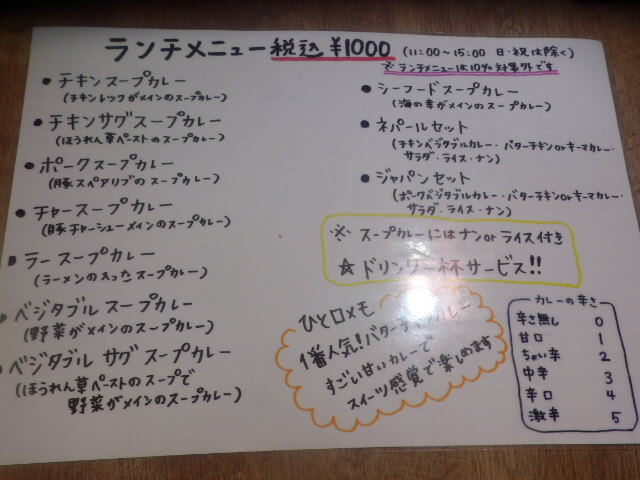 ランチメニュー 税込 ¥1000 (11:00~15:00 日・祝は除く)
※ランチメニューは10%対象外です
● チキンスープカレー
(チキンレッグがメインのスープカレー)
● チキンサグスープカレー
(ほうれん草ペーストのスープカレー)
● ポークスープカレー
(豚スペアリブのスープカレー)
● チャースープカレー
(豚チャーシューメインのスープカレー)
● ラースープカレー
(ラーメンの入ったスープカレー)
● ベジタブルスープカレー
(野菜がメインのスープカレー)
● ベジタブル サグ スープカレー
(ほうれん草ペーストのスープで
野菜がメインのスープカレー)
● シーフードスープカレー
(海の幸がメインのスープカレー)
● ネパールセット
(チキンベジタブルカレー・バターチキンorキーマカレー・
サラダ・ライス・ナン)
● ジャパンセット
(ポークベジタブルカレー・バターチキンorキーマカレー・
サラダ・ライス・ナン)
※ スープカレーにはナンorライス付き
☆ ドリンク一杯サービス!!
ひと口メモ
1番人気!バターチキンカレー
すごい甘いカレーで
スイーツ感覚で楽しめます
カレーの辛さ
辛さ無し 0
甘口 1
ちょい辛 2
中辛 3
辛口 4
激辛 5